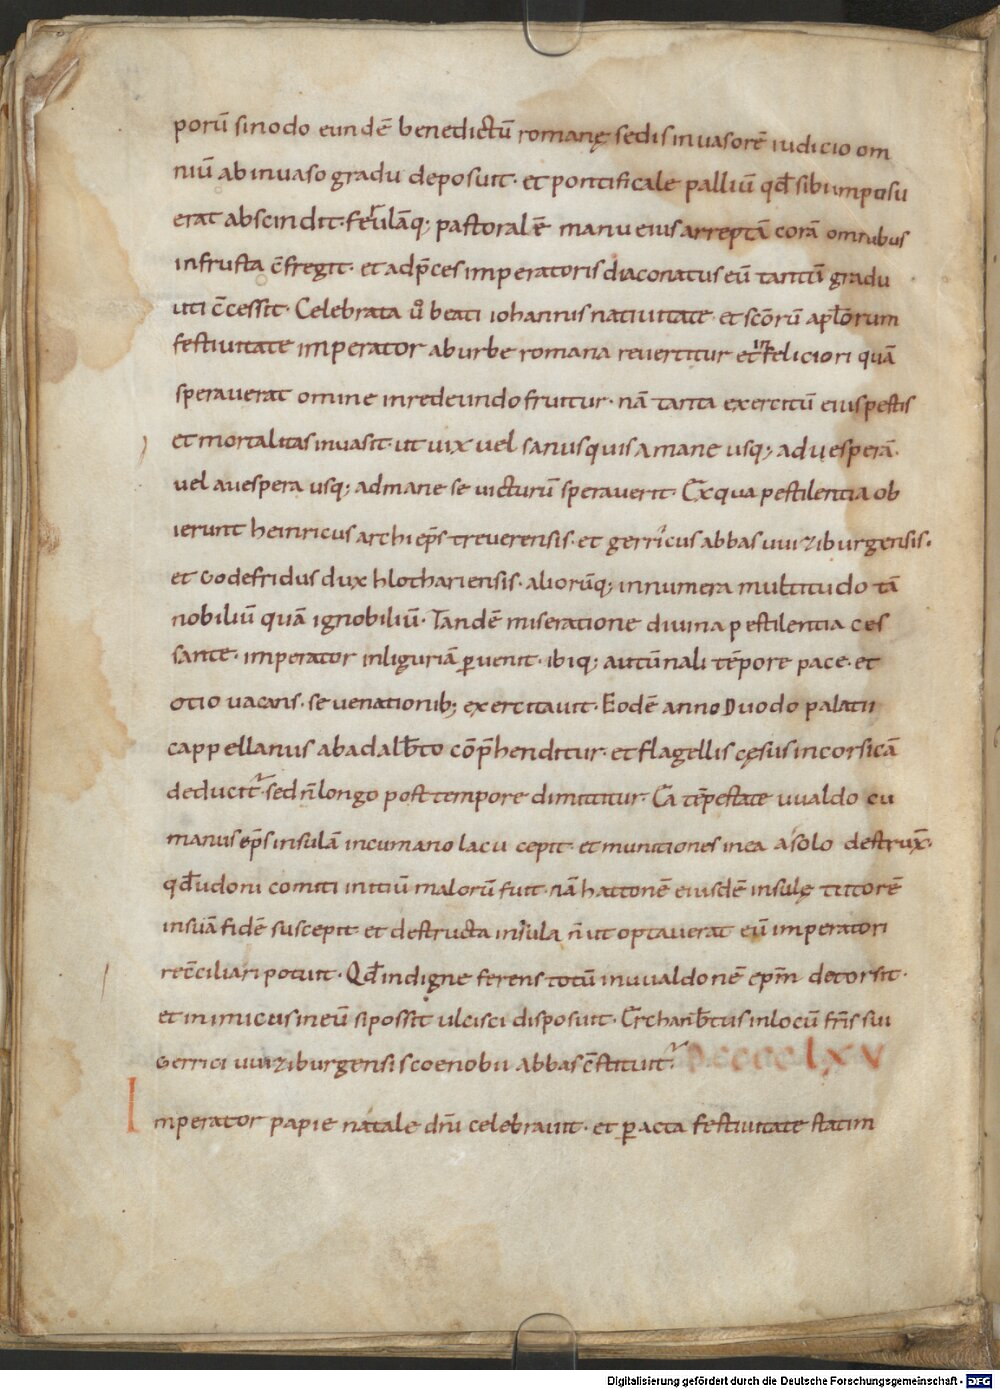 porū sinodo eundē benedictū romanę sedis inuasorē iudicio om
niū ab inuaso gradu deposuit· et pontificale palliū qđ sibi imposu
erat abscindit· ferulāq; pastoralē manu eius arreptā corā omnibus
in frusta c̄fregit· et ad p̄ces imperatoris diaconatus eū tantū gradu
uti c̄cessit· Celebrata ů beati iohannis natiuitate· et scōrū apłorum
festiuitate imperator ab urbe romana reuertitur et ñ feliciori quā
sperauerat omine in redeundo fruitur· nā tanta exercitū eius pestis
et mortalitas inuasit· ut uix uel sanus quis a mane usq; ad uesperā·
uel a uespera usq; ad mane se uicturū sperauerit· Ex qua pestilentia ob
ierunt heinricus archi ep̄s treuerensis· et gerricus abbas uuiziburgensis·
et Godefridus dux hlothariensis· aliorūq; innumera multitudo tā
nobiliū quā ignobiliū· Tandē miseratione diuina pestilentia ces
sante· imperator in liguriā ꝑuenit· ibiq; autūnali tēpore pace· et
otio uacans· se uenationib; exercitauit· Eodē anno Duodo palatii
cappellanus ab adalƀto cōp̄henditur· et flagellis cęsus in corsicā
deducit᷑· sed ñ longo post tempore dimittitur· Ea tēpestate uualdo cu
manus ep̄s insulā in cumano lacu cepit· et munitiones in ea a solo destrux̄·
qđ udoni comiti initiū malorū fuit· nā hattonē eiusdē insulę tutorē
in suā fidē suscepit· et destructa insula ñ ut optauerat eū imperatori
rec̄ciliari potuit· Qđ indigne ferens totū in uualdonē epm̄ detorsit·
et inimicus in eū si possit ulcisci disposuit· Erchanƀtus in locū fr̄is sui
Gerrici uuiziburgensis coenobii abbas c̄stituit᷑· Dcccclxv
Imperator papie natale dn̄i celebrauit· et ꝑacta festiuitate statim
Digitalisierung gefördert durch die Deutsche Forschungsgemeinschaft - DFG